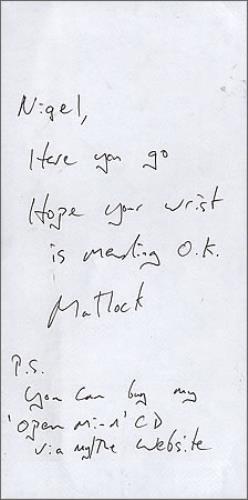 Nigel,
Here you go
Hope your wrist
is mending O.K.
Matlock
P.S.
You can buy my
'open mind' CD
via my/the website